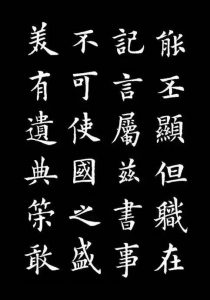 能丕顯但職在
記言屬茲書事
不可使國之盛
美有遺典䇿敢